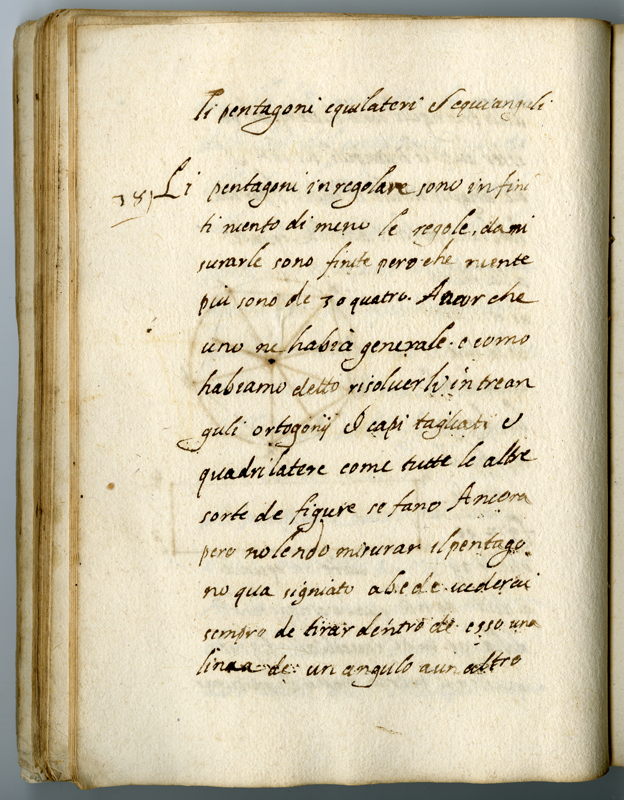 li pentagoni equilateri & equianguli
38) Li pentagoni inregolare sono infini
ti niento di meno le regole, dami
surarle sono finite pero che niente
piu sono de 3 o quatro. Ancor che
uno ne habia generale. e como
habiamo detto risoluerli in trean
guli ortogonij & capi tagliati e
quadrilatere come tutte le altre
sorte de figure se fano Ancora
pero uolendo misurar il pentago
no qua signiato a.b.c.d.e. uederai
sempre de tirar dentro de esso una
linea de un angulo a un altro